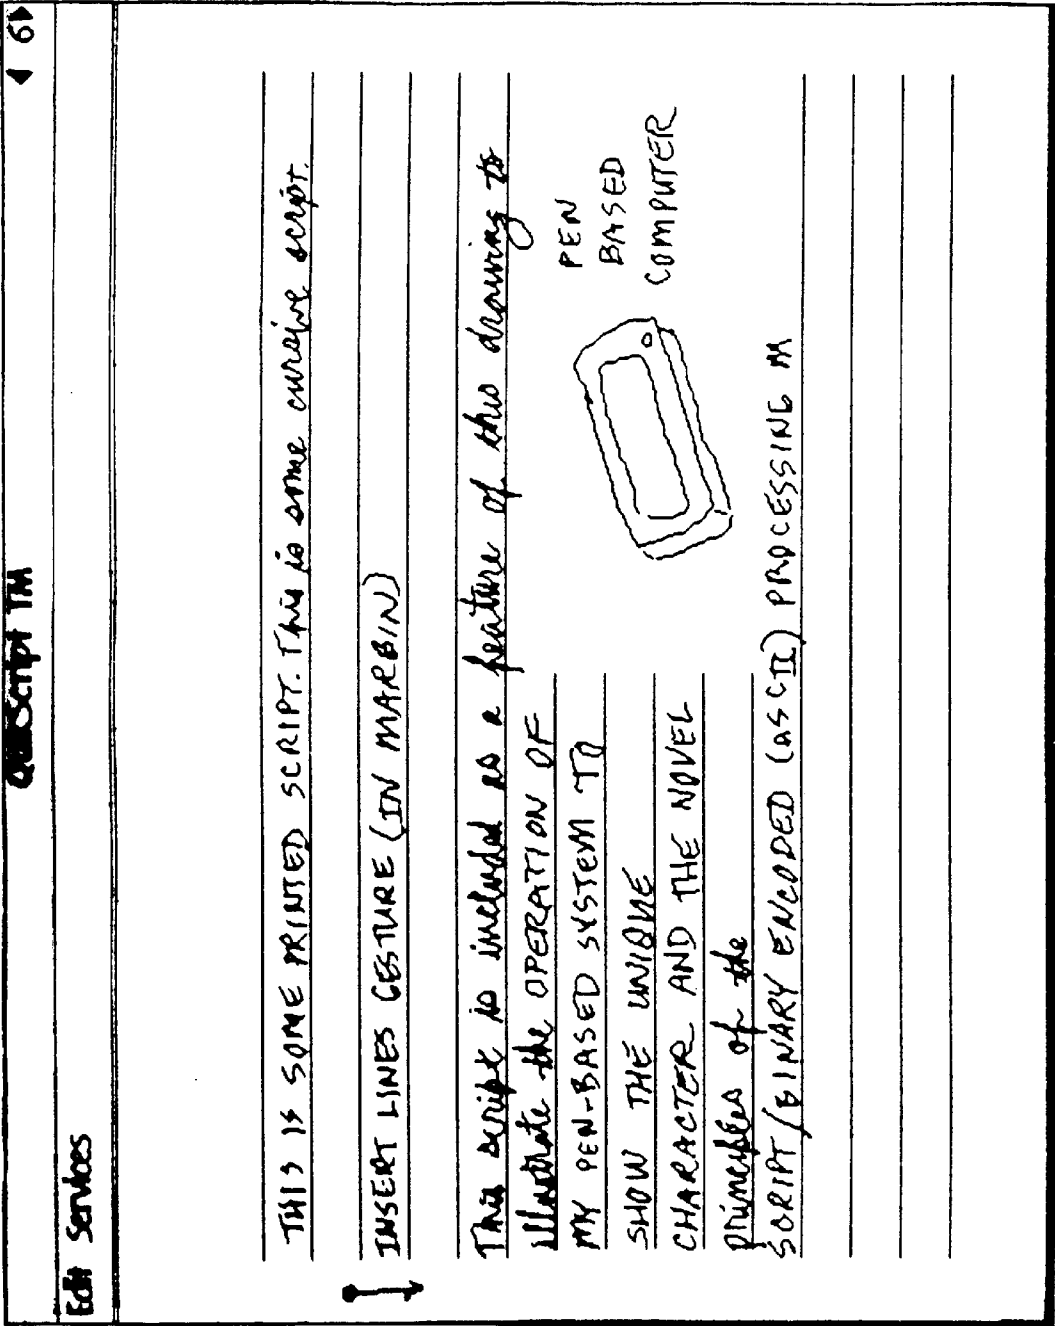 QuikScript TM
6
Edit Services
THIS IS SOME PRINTED SCRIPT. This is some cursive script.
INSERT LINES GESTURE (IN MARGIN)
This script is included as a feature of this drawing to
illustrate the OPERATION OF
MY PEN-BASED SYSTEM TO
SHOW THE UNIQUE
CHARACTER AND THE NOVEL
principles of the
SCRIPT/BINARY ENCODED (ASCII) PROCESSING M
PEN
BASED
COMPUTER